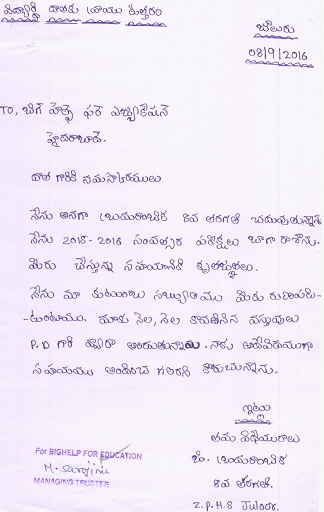 విద్యార్థి దాతకు వ్రాయు ఉత్తరం
జులురు
08/9/2016
TO, బిగ్ హెల్ప్ ఫర్ ఎడ్యుకేషన్
హైదరాబాద్.
దాత గారికి నమస్కారములు
నేను అనగా 8వ తరగతి చదువుతున్నాను
నేను 2015-2016 సంవత్సర పరీక్షలు బాగా రాశాను.
మీరు చేస్తున్న సహాయానికి కృతజ్ఞతలు.
నేను మా కుటుంబ సభ్యులము మీకు రుణపడి-
-ఉంటాము. మాకు నెల, నెల కావలసిన వస్తువులు
P.D గారి ద్వారా అందుతున్నాయి. నాకు
సహాయము అందించ గలరని కోరుచున్నాను.
ఇట్లు
తమ విధేయురాలు
8వ తరగతి.
Z.P.H.S Juloor.
For BIGHELP FOR EDUCATION
MANAGING TRUSTEE